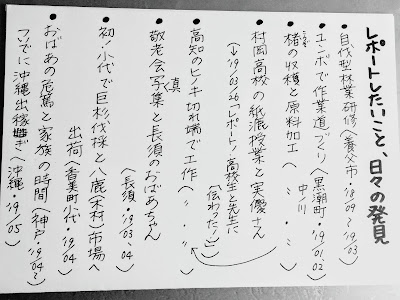 レポートしたいこと、日々の発見
・自伐型林業研修(養父市・'18/09〜'19/03)
・ユンボで作業道づくり(黒潮町・'19/01,02)
中ノ川
こうぞ
・楮の収穫と原料加工(〃・〃)
・村岡高校の紙漉授業と実優さん
(↓'19/03/26「レポート」高校生と先生に
伝わった!)
・高知のヒノキ切れ端で工作(〃・〃)
・敬老会写真集と長須のおばあちゃん
(長須・'19/03,04)
・初!小代で巨杉伐採と八鹿(木材)市場へ
出荷(香美町小代・'19/04)
・おばあの危篤と家族の時間(神戸・'19/04〜)
ついでに沖縄出稼ぎ(沖縄・'19/05)